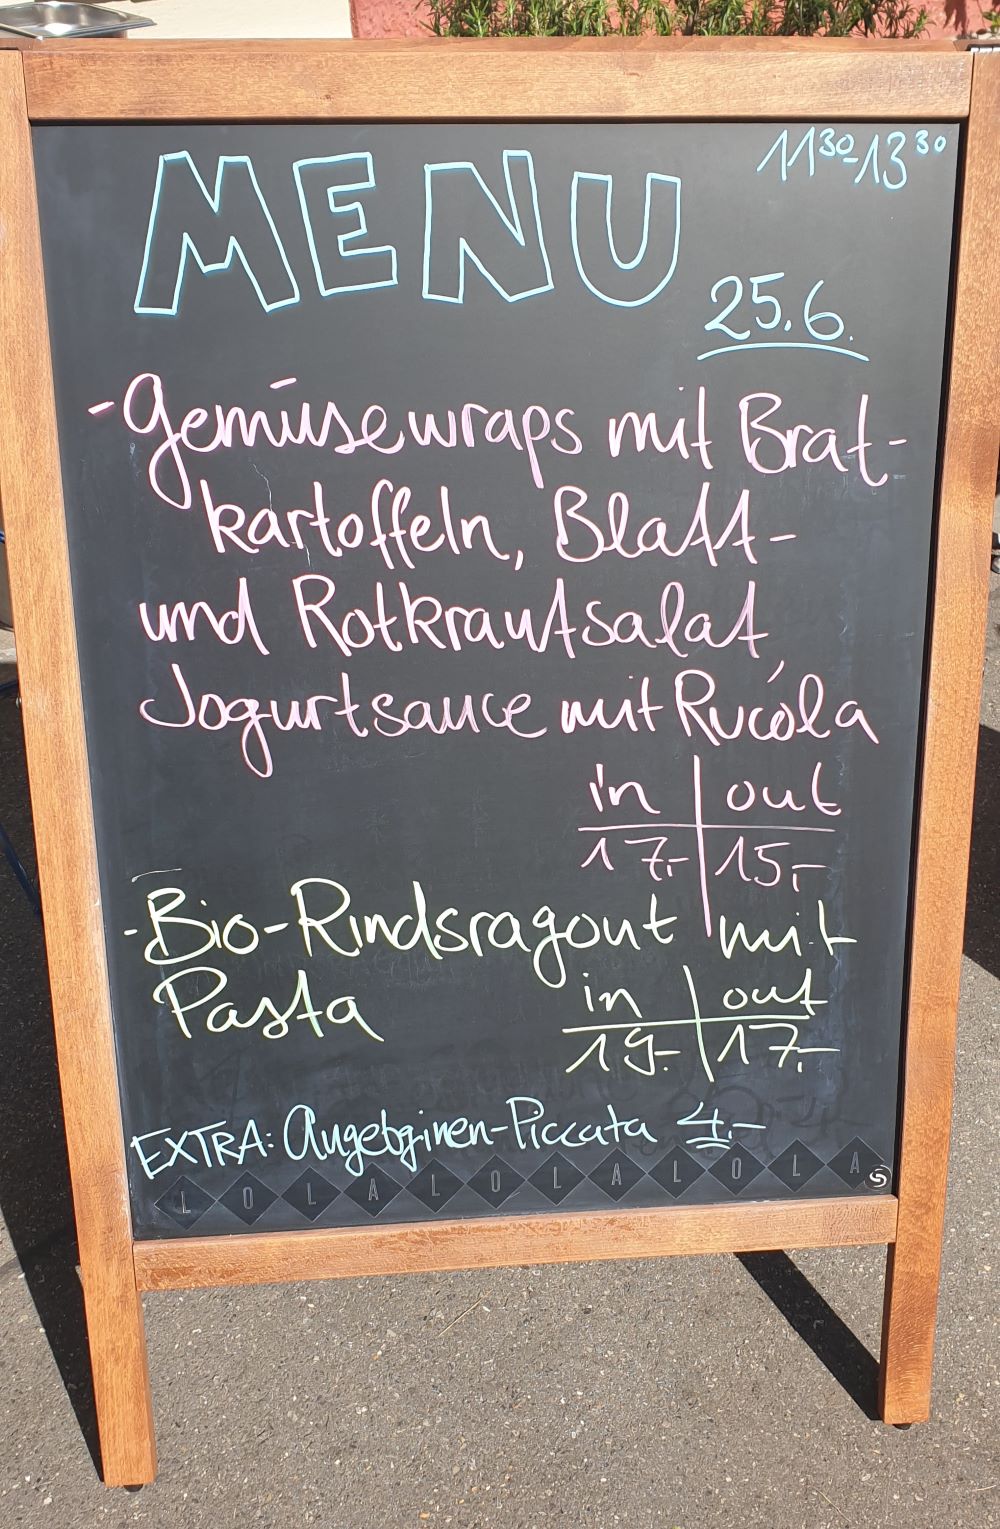 MENU
11³⁰-13³⁰
25.6.
-Gemüsewraps mit Brat-
kartoffeln, Blatt-
und Rotkrautsalat,
Jogurtsauce mit Rucola
in | out
17.- | 15.-
-Bio-Rindsragout mit
Pasta
in | out
19.- | 17.-
EXTRA: Augebginen-Piccata 4.-
LOLALOLALOLA